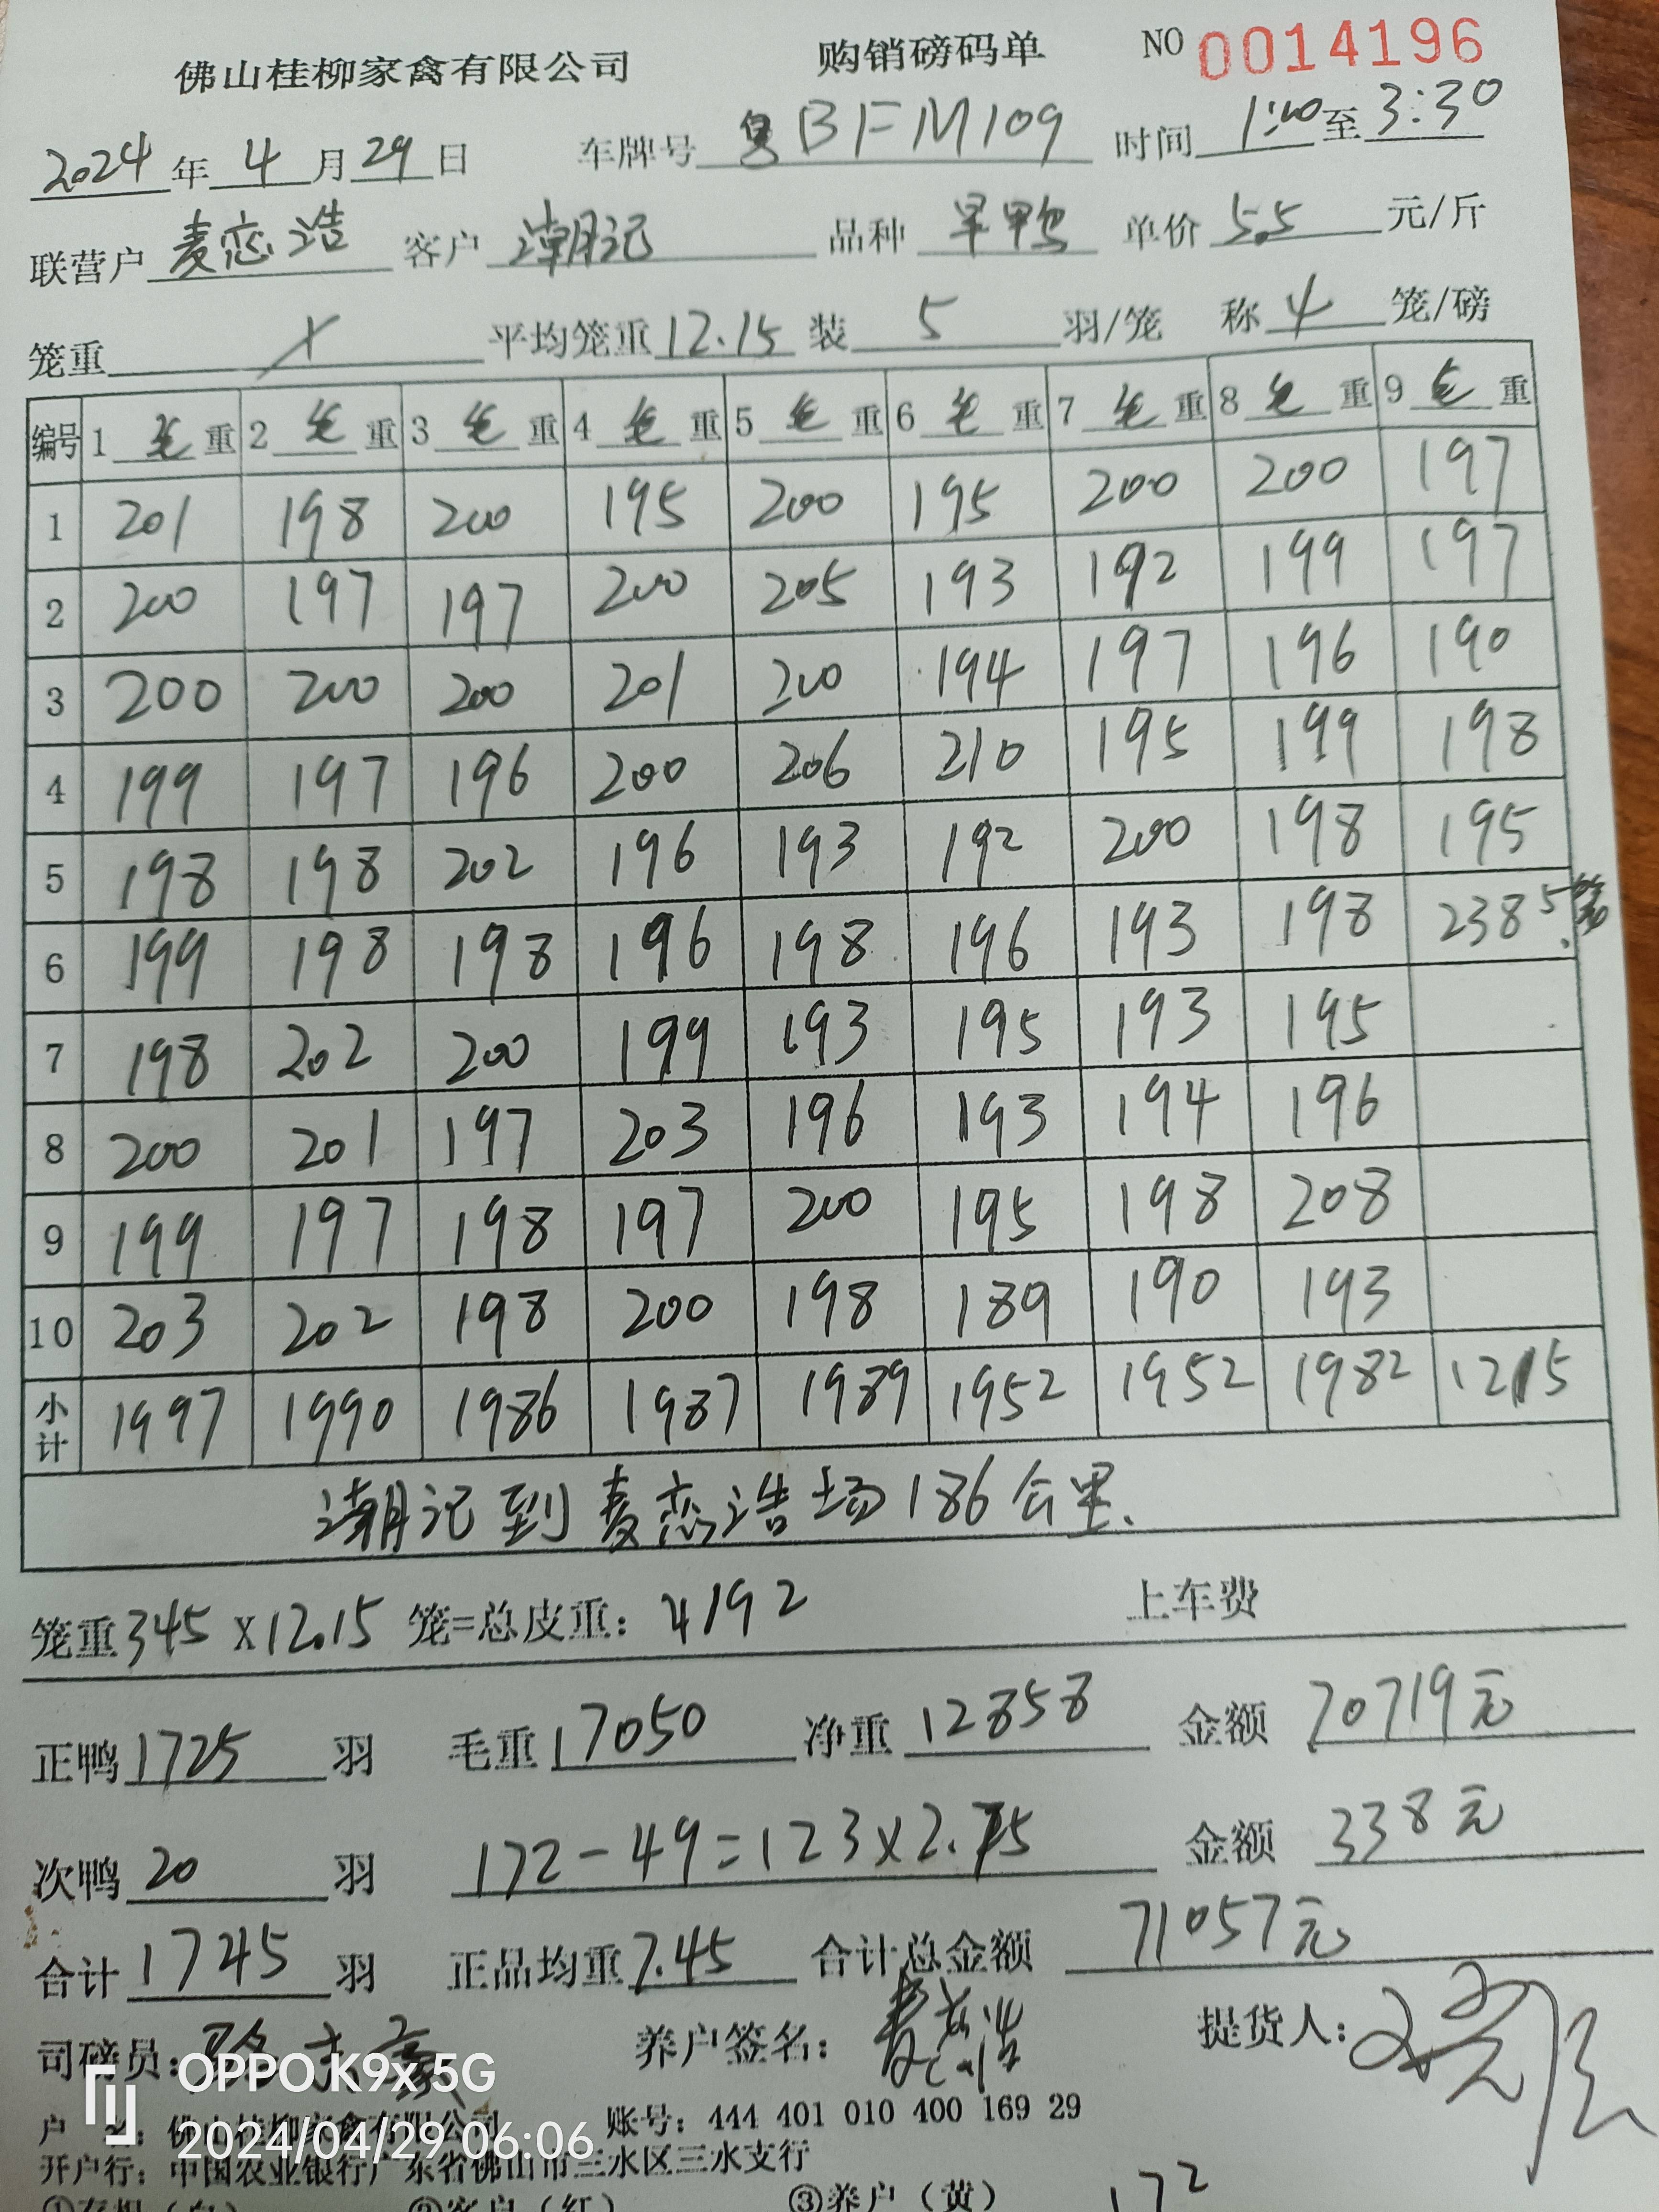 佛山桂柳家禽有限公司 购销磅码单 NO 0014196
2024年4月29日 车牌号 粤BFM109 时间 1:00至3:30
联营户 麦恋浩 客户 潮记 品种 旱鸭 单价 5.5 元/斤
笼重 X 平均笼重 12.15 装 5 羽/笼 称 4 笼/磅
编号 1 毛 重 2 毛 重 3 毛 重 4 毛 重 5 毛 重 6 毛 重 7 毛 重 8 毛 重 9 毛 重
1 201 198 200 195 200 195 200 200 197
2 200 197 197 200 205 193 192 199 197
3 200 200 200 201 200 194 197 196 190
4 199 197 196 200 206 210 195 199 198
5 198 198 202 196 193 192 200 198 195
6 199 198 198 196 198 196 193 198 238 5笼
7 198 202 200 199 193 195 193 195
8 200 201 197 203 196 193 194 196
9 199 197 198 197 200 195 198 208
10 203 202 198 200 198 189 190 193
小计 1997 1990 1986 1987 1989 1952 1952 1982 1215
潮记到麦恋浩场186公里.
笼重345 X12.15 笼=总皮重: 4192 上车费
正鸭 1725 羽 毛重 17050 净重 12858 金额 70719元
次鸭 20 羽 172-49=123×2.75 金额 338元
合计 1745 羽 正品均重 7.45 合计总金额 71057元
司磅员: 养户签名: 麦恋浩 提货人:
OPPO K9x 5G
户 名: 佛山桂柳家禽有限公司 账号: 444 401 010 400 169 29
2024/04/29 06:06
开户行: 中国农业银行广东省佛山市三水区三水支行
①存根(白) ②客户(红) ③养户(黄) 172